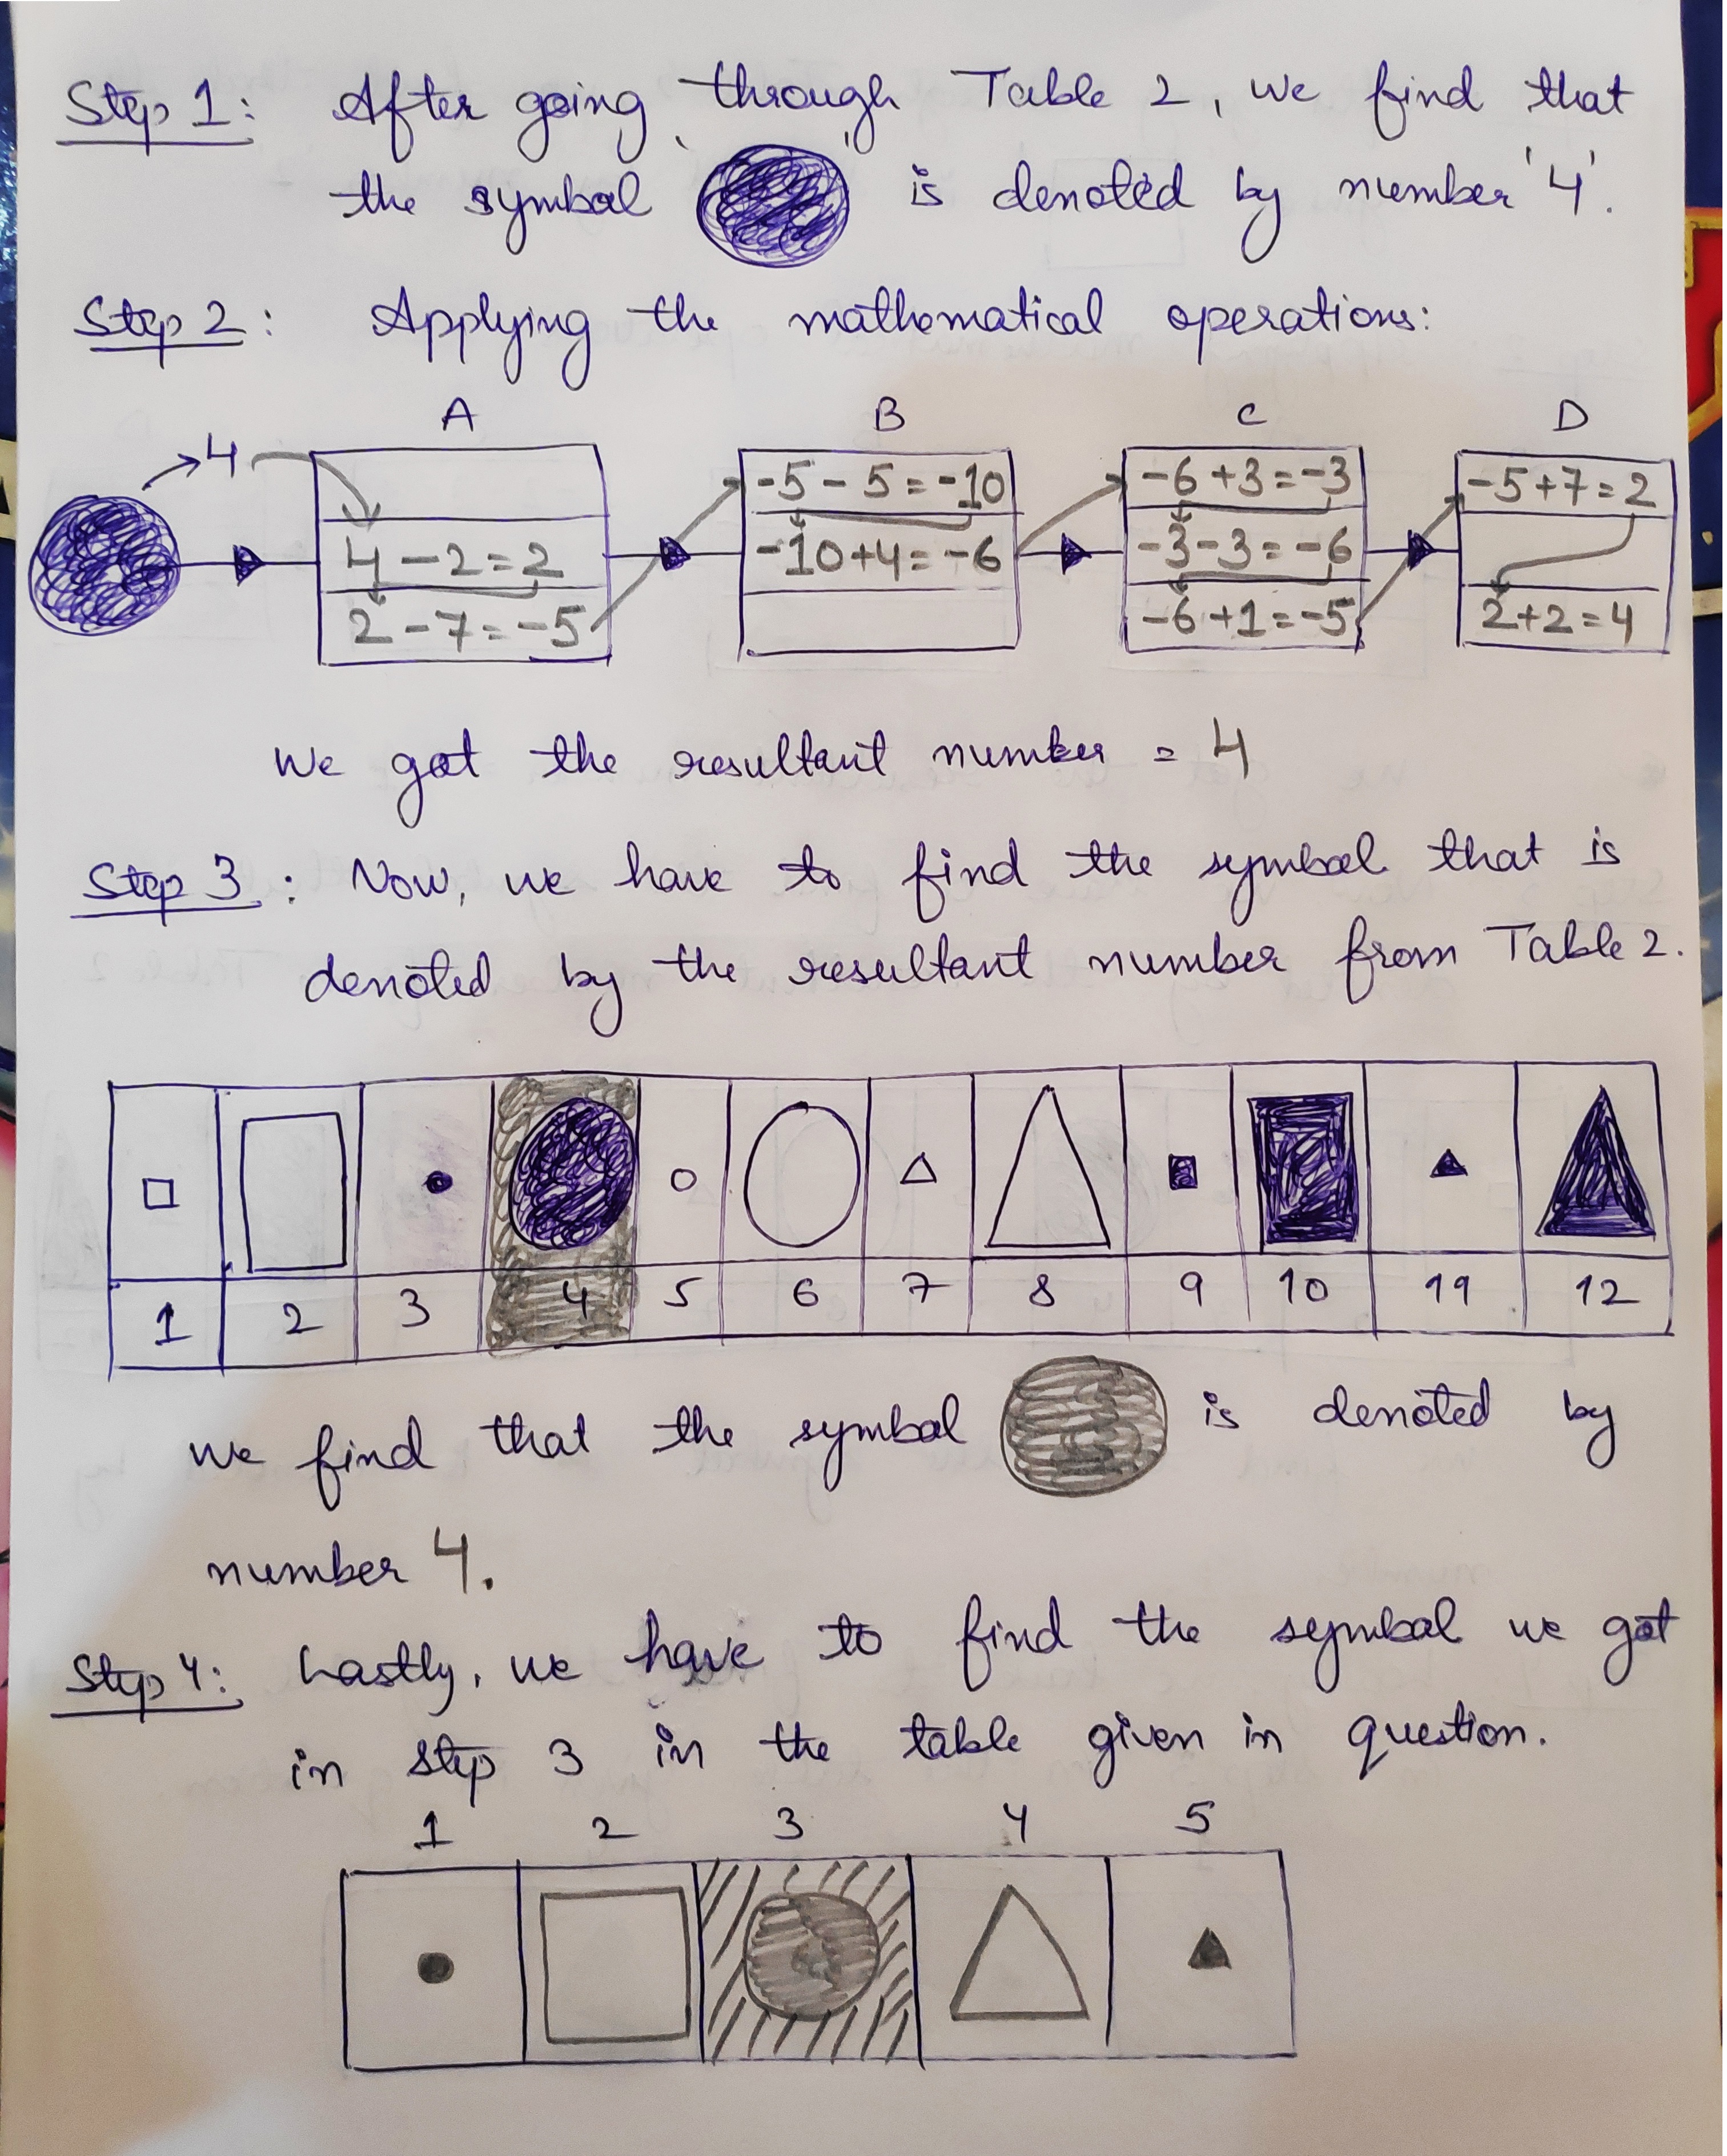 Step 1: After going through Table 2, we find that
the symbol is denoted by number '4'.
Step 2: Applying the mathematical operations:
A B C D
4
-5 - 5 = -10 -6 + 3 = -3 -5 + 7 = 2
4 - 2 = 2 -10 + 4 = -6 -3 - 3 = -6
2 - 7 = -5 -6 + 1 = -5 2 + 2 = 4
We got the resultant number = 4
Step 3: Now, we have to find the symbol that is
denoted by the resultant number from Table 2.
1 2 3 4 5 6 7 8 9 10 11 12
we find that the symbol is denoted by
number 4.
Step 4: Lastly, we have to find the symbol we got
in step 3 in the table given in question.
1 2 3 4 5